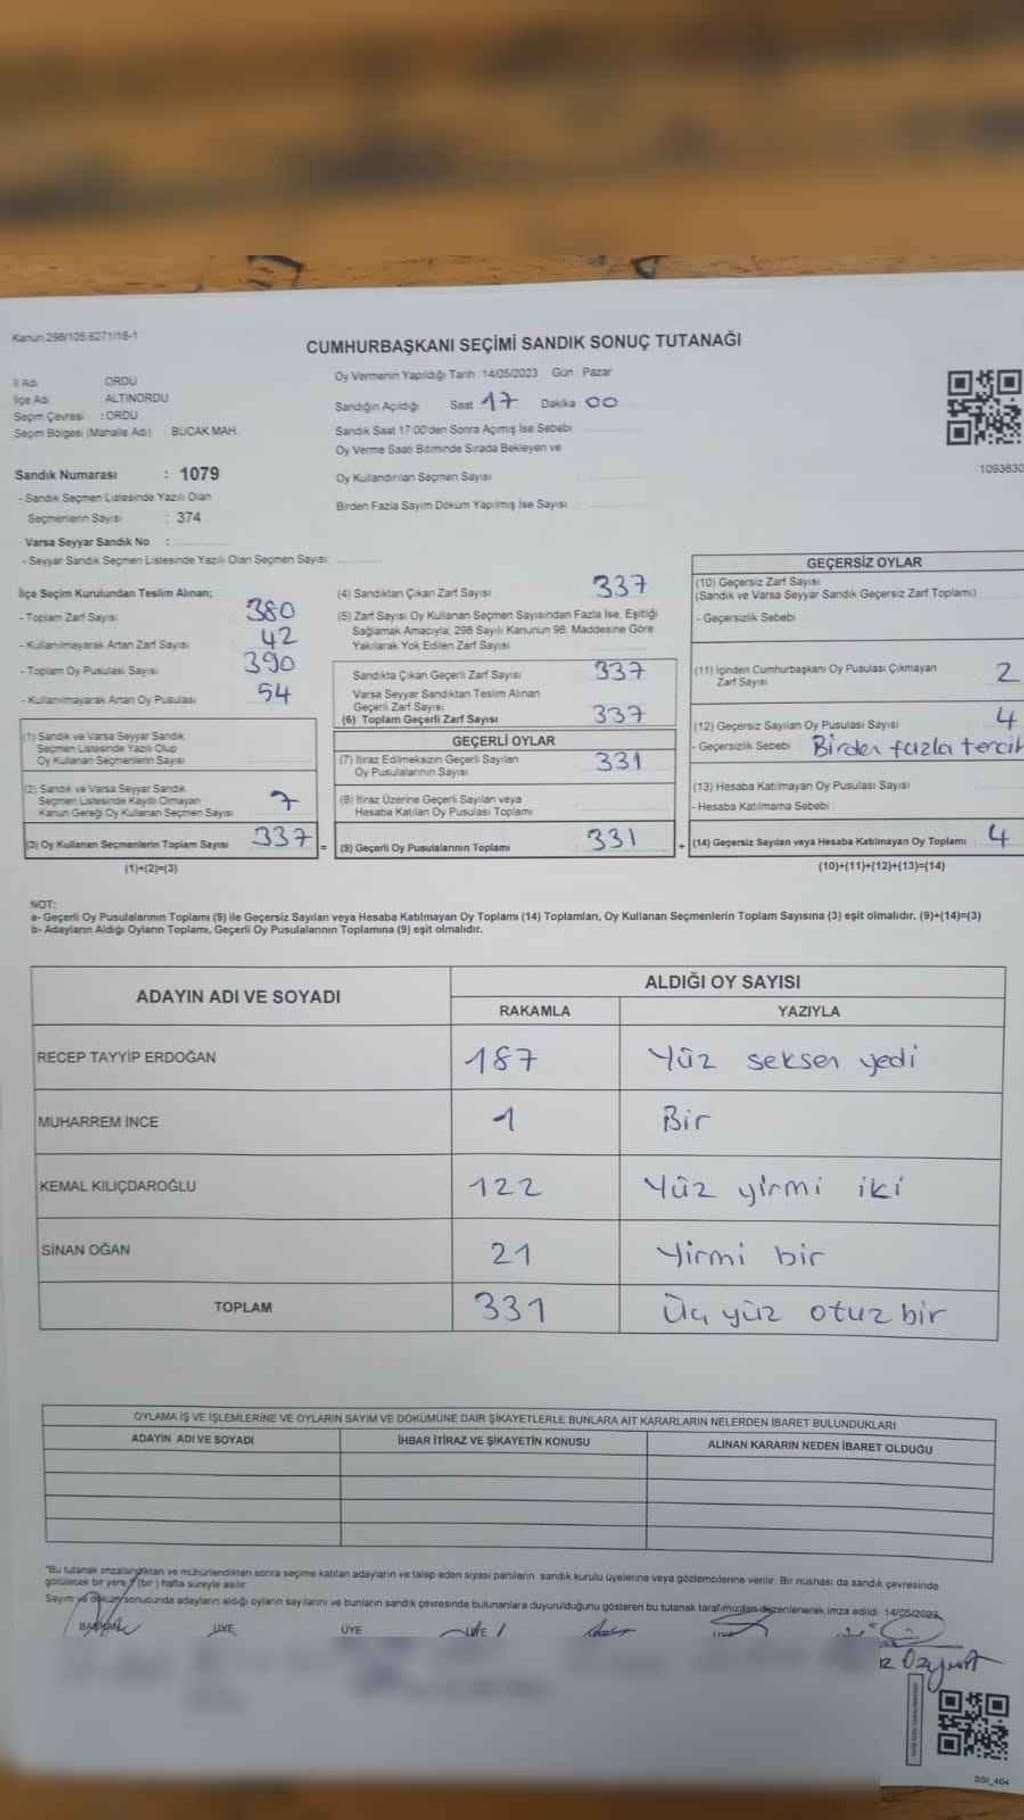 Kanun:298/105-6271/16-1
CUMHURBAŞKANI SEÇİMİ SANDIK SONUÇ TUTANAĞI
İl Adı ORDU
İlçe Adı ALTINORDU
Seçim Çevresi : ORDU
Seçim Bölgesi (Mahalle Adı) BUCAK MAH.
Oy Vermenin Yapıldığı Tarih 14/05/2023 Gün Pazar
Sandığın Açıldığı Saat 17 Dakika 00
Sandık Saat 17:00'den Sonra Açımış İse Sebebi
Oy Verme Saati Bitiminde Sırada Bekleyen ve
Oy Kullandırılan Seçmen Sayısı
Birden Fazla Sayım Döküm Yapılmış İse Sayısı
1093830
Sandık Numarası : 1079
- Sandık Seçmen Listesinde Yazılı Olan
Seçmenlerin Sayısı : 374
Varsa Seyyar Sandık No :
- Seyyar Sandık Seçmen Listesinde Yazılı Olan Seçmen Sayısı
İlçe Seçim Kurulundan Teslim Alınan;
- Toplam Zarf Sayısı 380
- Kullanılmayarak Artan Zarf Sayısı 42
- Toplam Oy Pusulası Sayısı 390
- Kullanılmayarak Artan Oy Pusulası 54
(1) Sandık ve Varsa Seyyar Sandık
Seçmen Listesinde Yazılı Olup
Oy Kullanan Seçmenlerin Sayısı
(2) Sandık ve Varsa Seyyar Sandık
Seçmen Listesinde Kayıtlı Olmayan
Kanun Gereği Oy Kullanan Seçmen Sayısı 7
(3) Oy Kullanan Seçmenlerin Toplam Sayısı 337 =
(1)+(2)=(3)
(4) Sandıktan Çıkan Zarf Sayısı 337
(5) Zarf Sayısı Oy Kullanan Seçmen Sayısından Fazla İse, Eşitliği
Sağlamak Amacıyla, 298 Sayılı Kanunun 98. Maddesine Göre
Yakılarak Yok Edilen Zarf Sayısı
Sandıkta Çıkan Geçerli Zarf Sayısı 337
Varsa Seyyar Sandıktan Teslim Alınan
Geçerli Zarf Sayısı
(6) Toplam Geçerli Zarf Sayısı 337
GEÇERLİ OYLAR
(7) İtiraz Edilmeksizin Geçerli Sayılan
Oy Pusulalarının Sayısı 331
(8) İtiraz Üzerine Geçerli Sayılan veya
Hesaba Katılan Oy Pusulası Toplamı
(9) Geçerli Oy Pusulalarının Toplamı 331 +
GEÇERSİZ OYLAR
(10) Geçersiz Zarf Sayısı
(Sandık ve Varsa Seyyar Sandık Geçersiz Zarf Toplamı)
- Geçersizlik Sebebi
(11) İçinden Cumhurbaşkanı Oy Pusulası Çıkmayan
Zarf Sayısı 2
(12) Geçersiz Sayılan Oy Pusulası Sayısı 4
- Geçersizlik Sebebi Birden fazla tercih
(13) Hesaba Katılmayan Oy Pusulası Sayısı
- Hesaba Katılmama Sebebi
(14) Geçersiz Sayılan veya Hesaba Katılmayan Oy Toplamı 4
(10)+(11)+(12)+(13)=(14)
NOT:
a- Geçerli Oy Pusulalarının Toplamı (9) ile Geçersiz Sayılan veya Hesaba Katılmayan Oy Toplamı (14) Toplamları, Oy Kullanan Seçmenlerin Toplam Sayısına (3) eşit olmalıdır. (9)+(14)=(3)
b- Adayların Aldığı Oyların Toplamı, Geçerli Oy Pusulalarının Toplamına (9) eşit olmalıdır.
ADAYIN ADI VE SOYADI
ALDIĞI OY SAYISI
RAKAMLA YAZIYLA
RECEP TAYYİP ERDOĞAN 187 Yüz seksen yedi
MUHARREM İNCE 1 Bir
KEMAL KILIÇDAROĞLU 122 Yüz yirmi iki
SİNAN OĞAN 21 Yirmi bir
TOPLAM 331 Üç yüz otuz bir
OYLAMA İŞ VE İŞLEMLERİNE VE OYLARIN SAYIM VE DÖKÜMÜNE DAİR ŞİKAYETLERLE BUNLARA AİT KARARLARIN NELERDEN İBARET BULUNDUKLARI
ADAYIN ADI VE SOYADI İHBAR İTİRAZ VE ŞİKAYETİN KONUSU ALINAN KARARIN NEDEN İBARET OLDUĞU
*Bu tutanak imzalandıktan ve mühürlendikten sonra seçime katılan adayların ve talep eden siyasi partilerin, sandık kurulu üyelerine veya gözlemcilerine verilir. Bir nüshası da sandık çevresinde
görülecek bir yere 7 (bir) hafta süreyle asılır.
Sayım ve döküm sonucunda adayların aldığı oyların sayılarını ve bunların sandık çevresinde bulunanlara duyurulduğunu gösteren bu tutanak tarafımızdan düzenlenerek imza edildi. 14/05/2023
BAŞKAN ÜYE ÜYE ÜYE
Özyurt
SSI_404